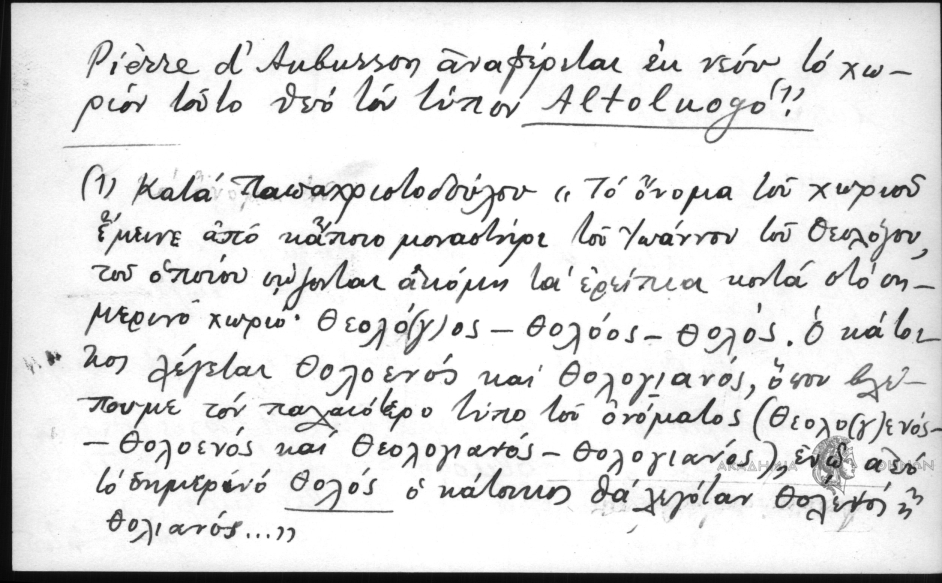 Pièrre d' Aubusson ἀναφέρεται ἐκ νέου τό χω-
ριόν τοῦτο ὑπό τόν τύπον Altoluogo (1)!
(1) Κατά Παπαχριστοδούλου „ Τό ὄνομα τοῦ χωριοῦ
ἔμεινε ἀπό κάποιο μοναστήρι τοῦ Ἰωάννου τοῦ Θεολόγου,
τοῦ ὁποίου σώζονται ἀκόμη τά ἐρείπια κοντά στό ση-
μερινό χωριό· Θεολό(γ)ος – Θολόος – Θολός. Ὁ κάτοι-
κος λέγεται Θολοενός καί Θολογιανός, ὅπου βλέ-
πουμε τόν παλαιότερο τύπο τοῦ ὀνόματος (Θεολο(γ)ενός-
– Θολοενός καί Θεολογιανός – Θολογιανός), ἐνῶ ἀπό
τό σημερινό Θολός ὁ κάτοικος θά λεγόταν Θολενός ἤ
Θολιανός...„
ΑΚΑΔΗΜΙΑ ΑΘΗΝΩΝ